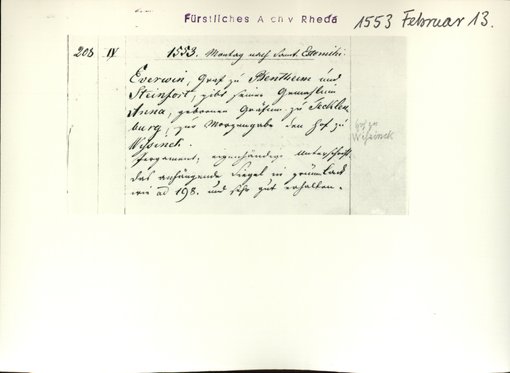 Fürstliches Archiv Rheda
1553 Februar 13.
208 IV 1553. Montag nach Sanct. Estomihi.
Everwin, Graf zu Bentheim und
Steinfort, gibt seiner Gemahlin
Anna, geborenen Gräfin zu Tecklen-
burg, zur Morgengabe den Hof zu
Wissinck.
Pergament, eigenhändige Unterschrift
das anhängende Siegel in grünem Lack
wie ad 198. und sehr gut erhalten.
Hof zu
Wissinck